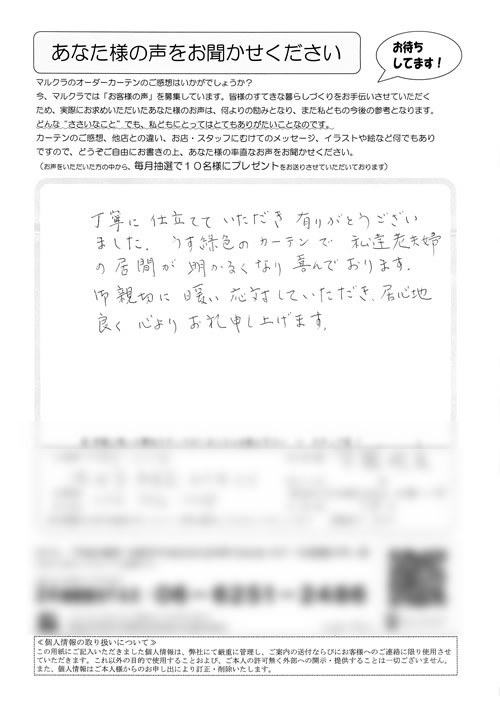 あなた様の声をお聞かせください
お待ち
してます！
マルクラのオーダーカーテンのご感想はいかがでしょうか？
今、マルクラでは「お客様の声」を募集しています。皆様のすてきな暮らしづくりをお手伝いさせていただく
ため、実際にお求めいただいたあなた様のお声は、何よりの励みとなり、また私どもの今後の参考となります。
どんな“ささいなこと”でも、私どもにとってはとてもありがたいことなのです。
カーテンのご感想、他店との違い、お店・スタッフにむけてのメッセージ、イラストや絵など何でもあり
ですので、どうぞご自由にお書きの上、あなた様の率直なお声をお聞かせください。
（お声をいただいた方の中から、毎月抽選で１０名様にプレゼントをお送りさせていただいております）
丁寧に仕立てて いただき 有りがとうござい
ました。 うす緑色のカーテンで 私達老夫婦
の居間が 明かるくなり 喜んでおります。
御親切に 暖い 応対していただき、居心地
良く 心より お礼申し上げます。
06-6251-2486
≪個人情報の取り扱いについて≫
この用紙にご記入いただきました個人情報は、弊社にて厳重に管理し、ご案内の送付ならびにお客様へのご連絡に限り使用させ
ていただきます。これ以外の目的で使用することおよび、ご本人の許可無く外部への開示・提供することは一切ございません。
また、個人情報はご本人様からのお申し出により訂正・削除いたします。